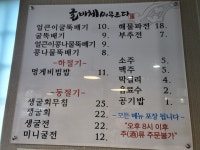 얼큰이굴뚝배기 10.
굴뚝배기 9.
얼큰이콩나물뚝배기 10.
콩나물뚝배기 9.
-하절기-
멍게비빔밥 11.
-동절기-
생굴회무침 25.
생굴회 22.
생굴전 22.
미니굴전 12.
해물파전 18.
부추전 7.
소주
맥주
막걸리 4.
음료수 2.
공기밥 1.
모든 메뉴 포장 됩니다
"오후 8시 이후
주(酒)류 주문불가"